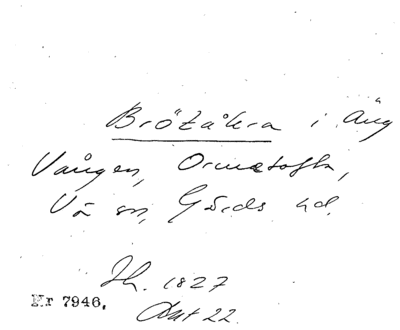 Brötåkra i Äng
Vången, Ormatofta,
Vä sn, Gärds hd.
Jh. 1827
Nr 7946, Akt 22.